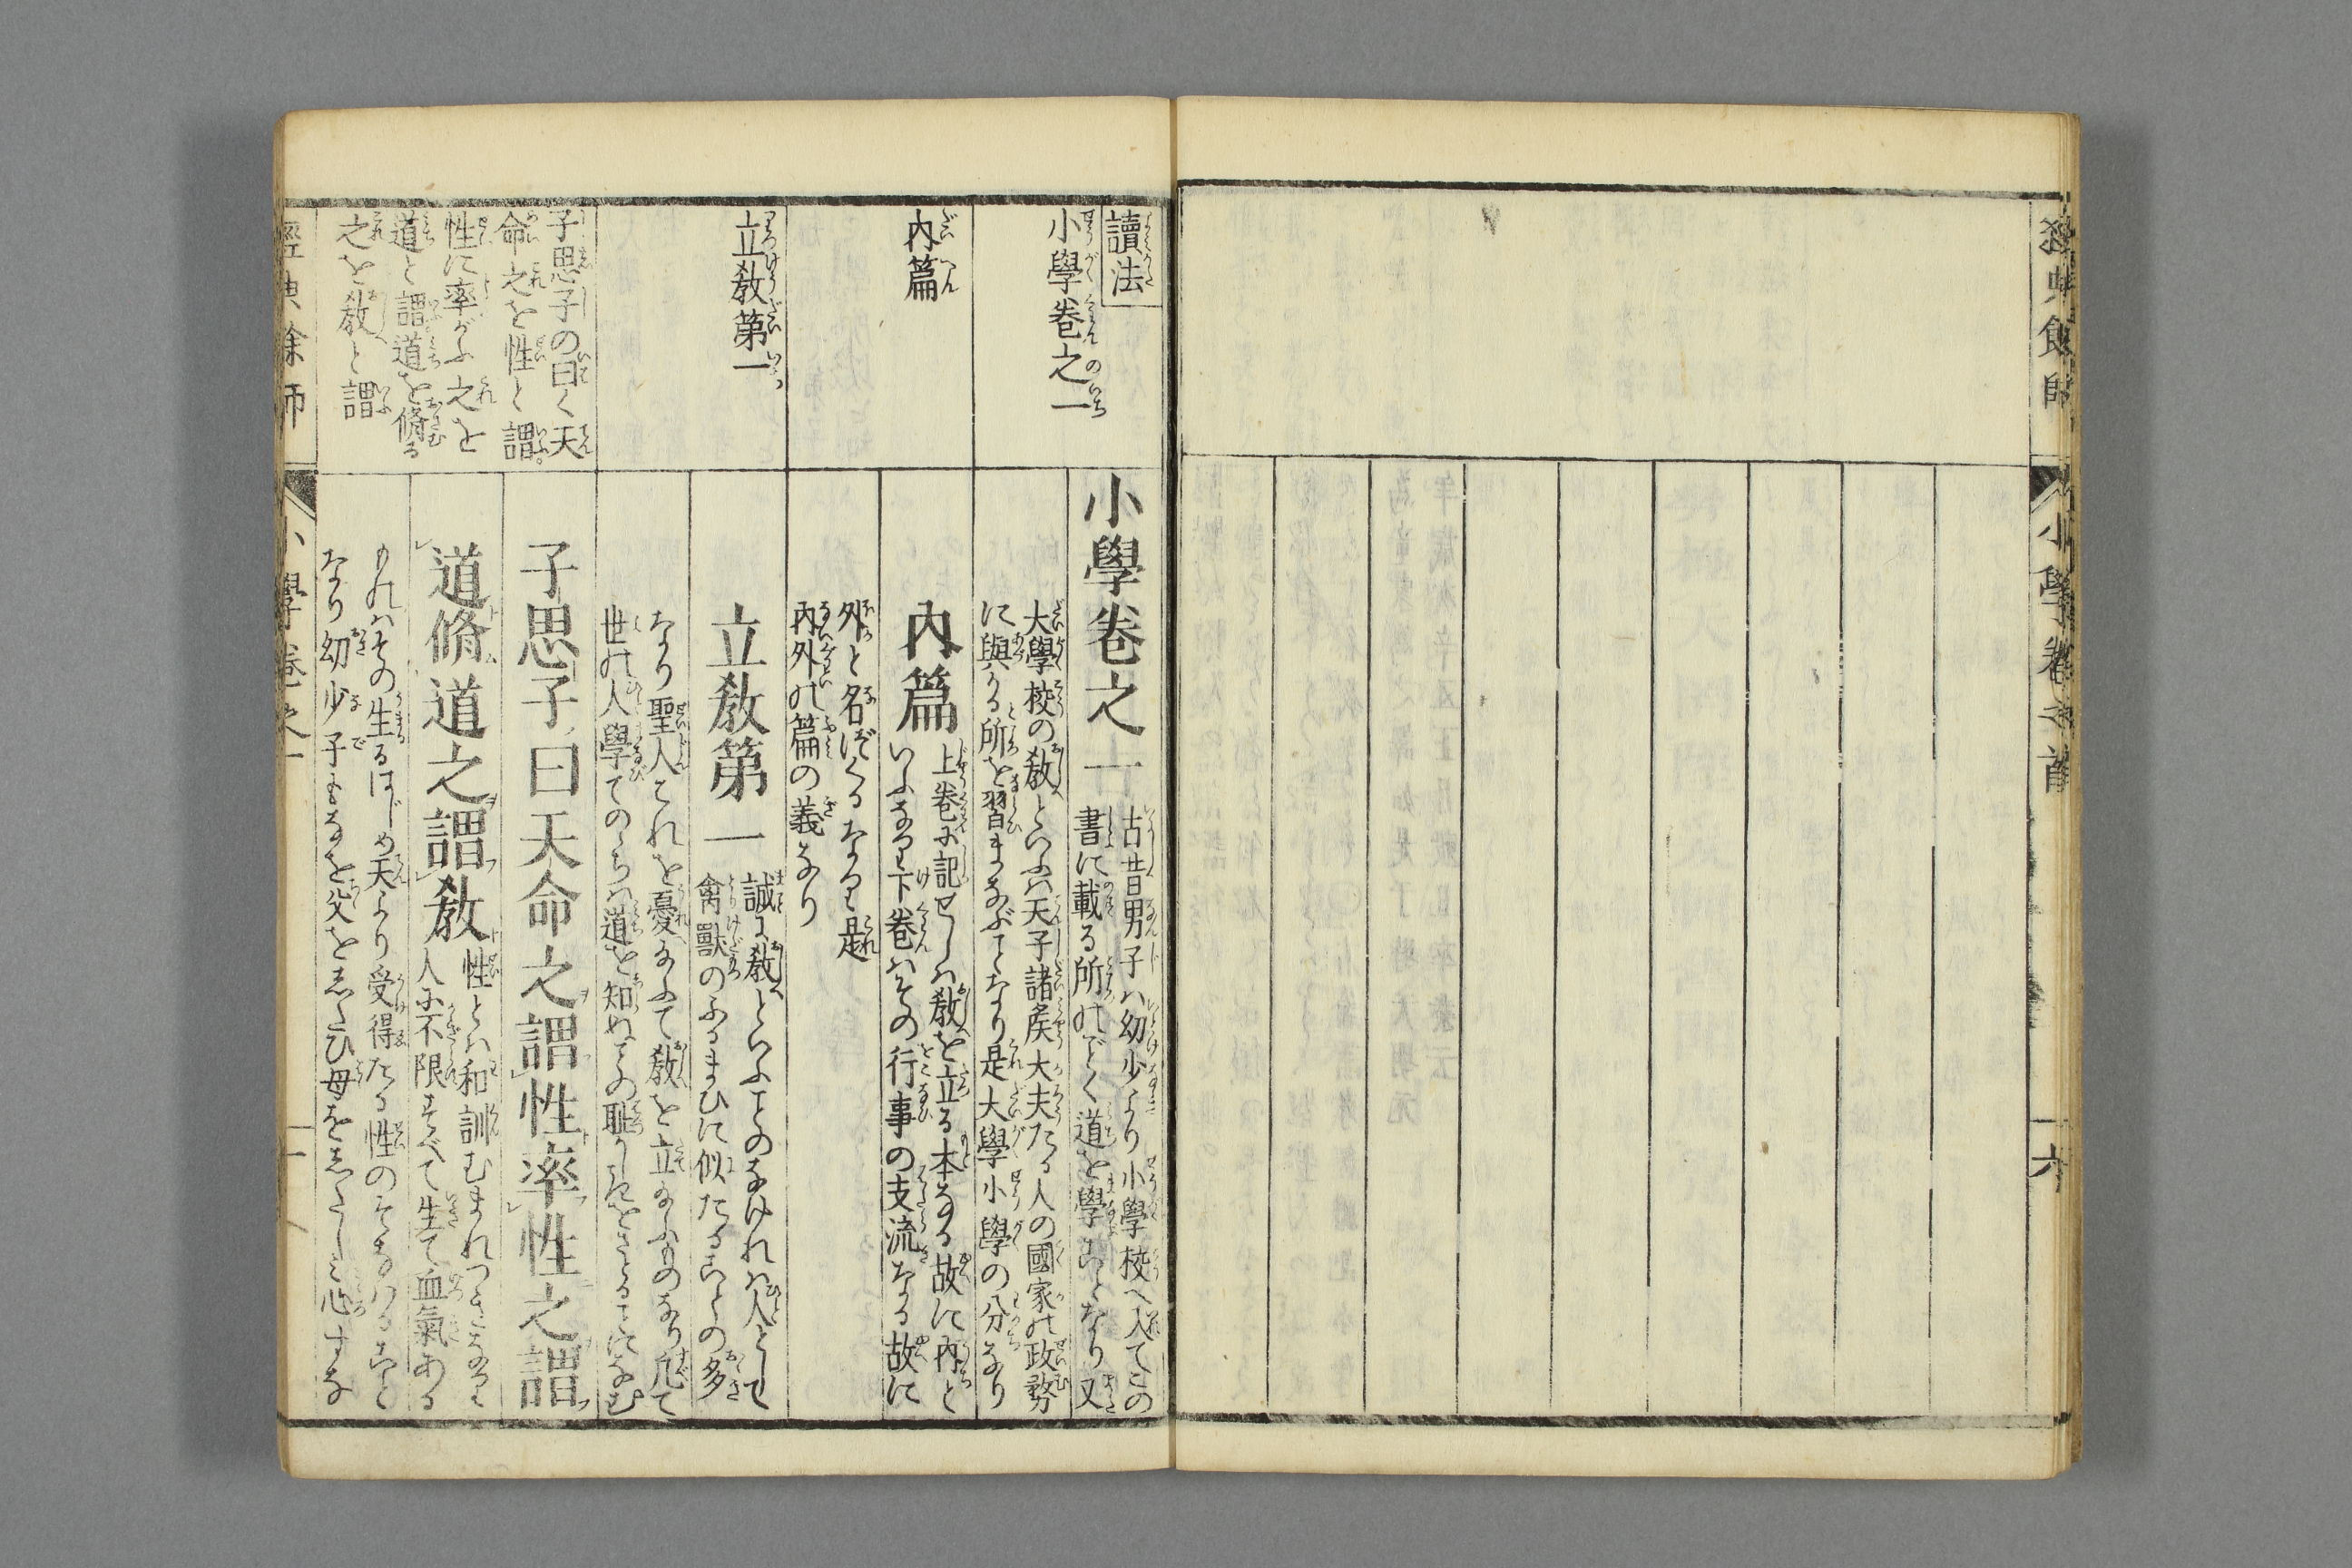 經典餘師
小學卷之首
十六
讀法
小學卷之一
內篇
立教第一
子思子の曰く天
命之を性と謂
性に率がふ之を
道と謂道を脩る
之を教と謂
小學卷之一
古昔男子ハ幼少より小學校へ入てこの
書に載る所のごとく道を學ぶことなり又
大學校の教といふハ天子諸矦大夫たる人の國家の政務
に與かる所を習まなぶことなり是大學小學の分なり
內篇
上卷に記せしハ教を立る本なる故に內と
いふなり下卷ハその行事の支流なる故に
外と名づくるなり是
內外の篇の義なり
立教第一
誠に教といふことのなければ人として
禽獸のふるまひに似たることの多
なり聖人これを憂なふて教を立なふものなり凡て
世の人學てのちハ道を知ぬことの耻
子思子曰天命之謂性率性之謂
道脩道之謂教
性とハ和訓むまれつきなり
人に不限すべて生て血氣ある
ものハその生るはじめ天より受得たる性のそなはること
なり幼少子もよなを父をしたひ母をしたしミ心すな
經典餘師
小學卷之一